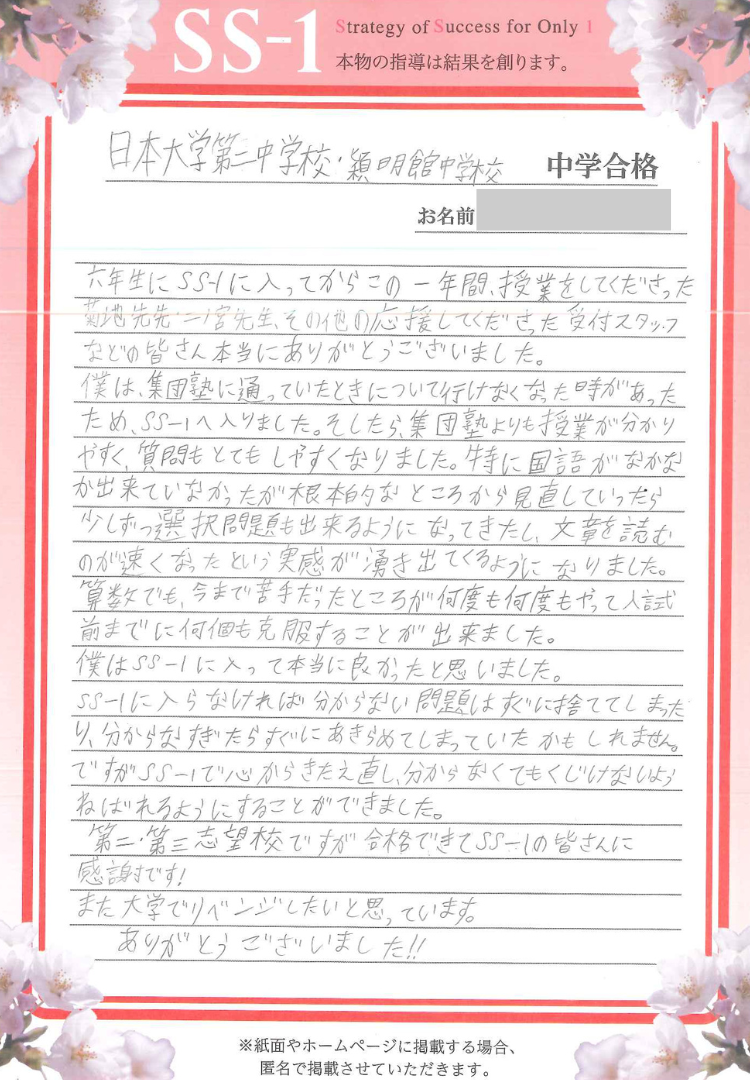 SS-1
Strategy of Success for Only 1
本物の指導は結果を創ります。
日本大学第二中学校・穎明館中学校 中学合格
お名前
六年生にSS-1に入ってからこの一年間、授業をしてくださった
菊地先先・二宮先生、その他の応援してくださった受付スタッフ
などの皆さん本当にありがとうございました。
僕は、集団塾に通っていたときについて行けなくなった時があった
ため、SS-1へ入りました。そしたら、集団塾よりも授業が分かり
やすく、質問もとてもしやすくなりました。特に国語がなかな
か出来ていなかったが根本的なところから見直していったら
少しずつ選択問題も出来るようになってきたし、文章を読む
のが速くなったという実感が湧き出てくるようになりました。
算数でも、今まで苦手だったところが何度も何度もやって入試
前までに何個も克服することが出来ました。
僕はSS-1に入って本当に良かったと思いました。
SS-1に入らなければ分からない問題はすぐに捨ててしまった
り、分からなすぎたらすぐにあきらめてしまっていたかもしれません。
ですがSS-1で心からきたえ直し、分からなくてもくじけないよう
ねばれるようにすることができました。
第二・第三志望校ですが合格できてSS-1の皆さんに
感謝です!
また大学でリベンジしたいと思っています。
ありがとうございました!!
※紙面やホームページに掲載する場合、
匿名で掲載させていただきます。